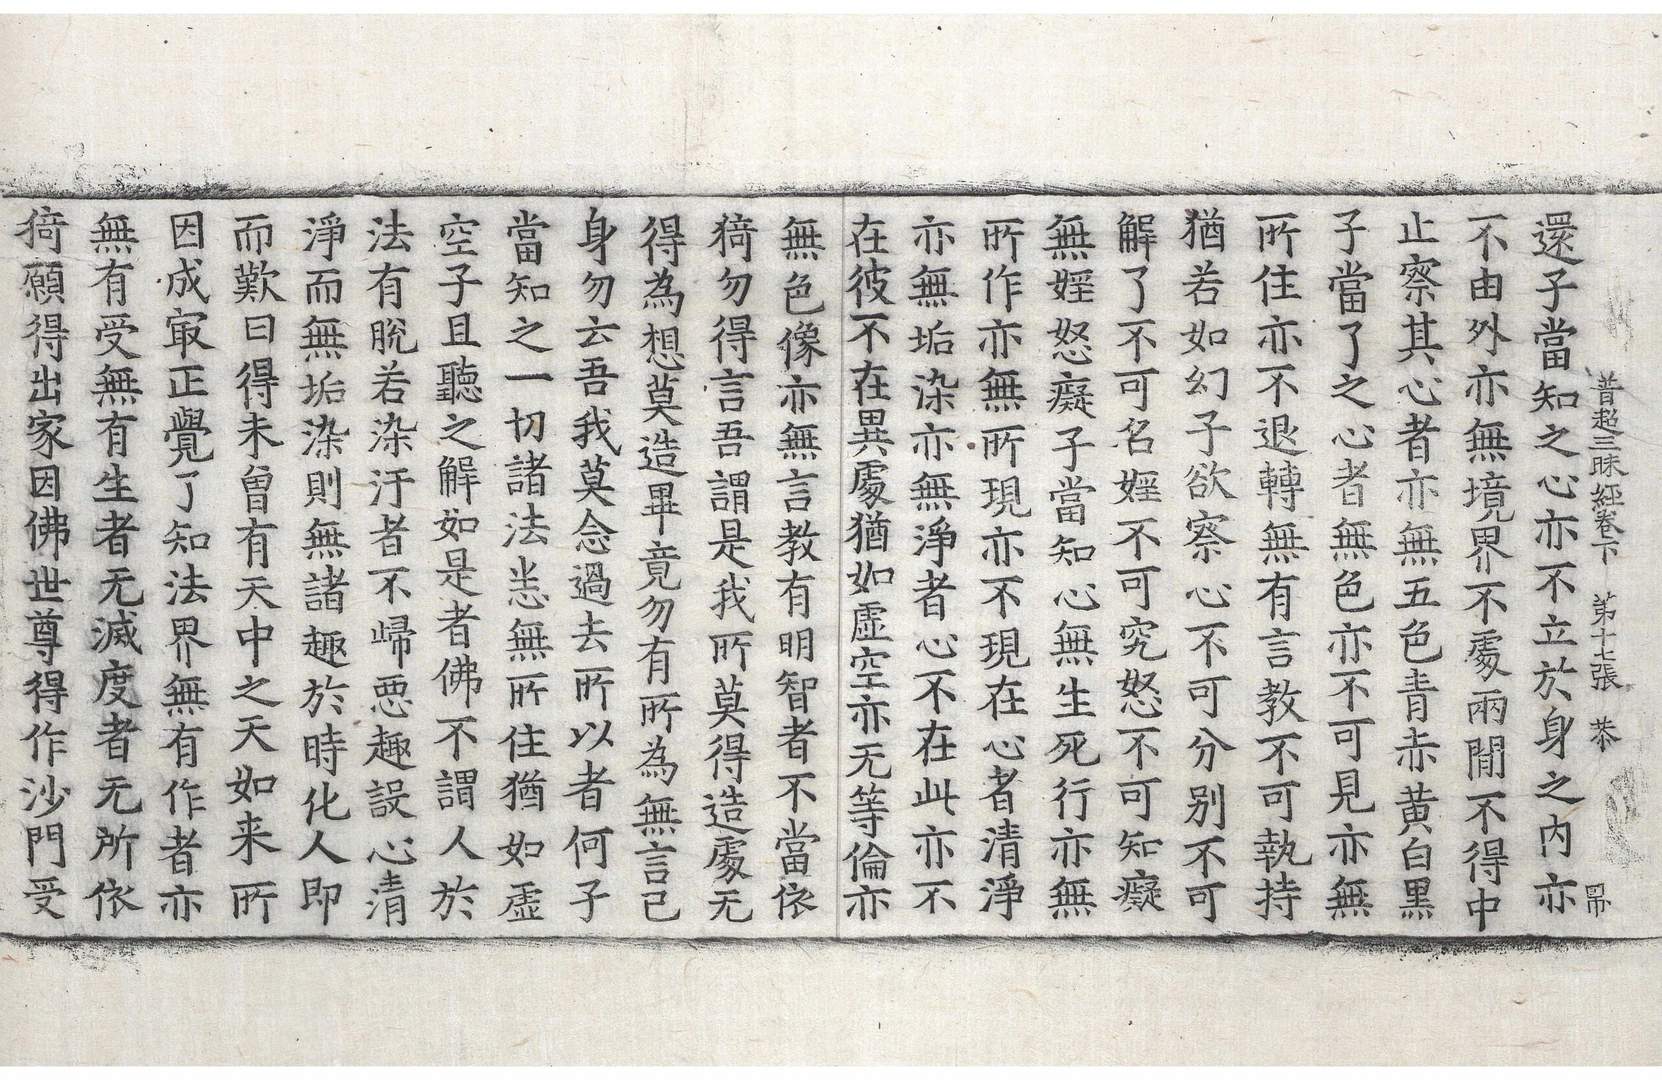 普超三昧經卷下　第十七張　恭
還子當知之心亦不立於身之內亦
不由外亦無境界不處兩閒不得中
止察其心者亦無五色青赤黃白黑
子當了之心者無色亦不可見亦無
所住亦不退轉無有言教不可執持
猶若如幻子欲察心不可分別不可
解了不可名婬不可究怒不可知癡
無婬怒癡子當知心無生死行亦無
所作亦無所現亦不現在心者清淨
亦無垢染亦無淨者心不在此亦不
在彼不在異處猶如虛空亦无等倫亦
無色像亦無言教有明智者不當依
猗勿得言吾謂是我所莫得造處无
得為想莫造畢竟勿有所為無言己
身勿云吾我莫念過去所以者何子
當知之一切諸法恙無所住猶如虛
空子且聽之解如是者佛不謂人於
法有脫若染汙者不歸惡趣設心清
淨而無垢染則無諸趣於時化人即
而歎曰得未曾有天中之天如来所
因成㝡正覺了知法界無有作者亦
無有受無有生者无滅度者无所依
猗願得出家因佛世尊得作沙門受